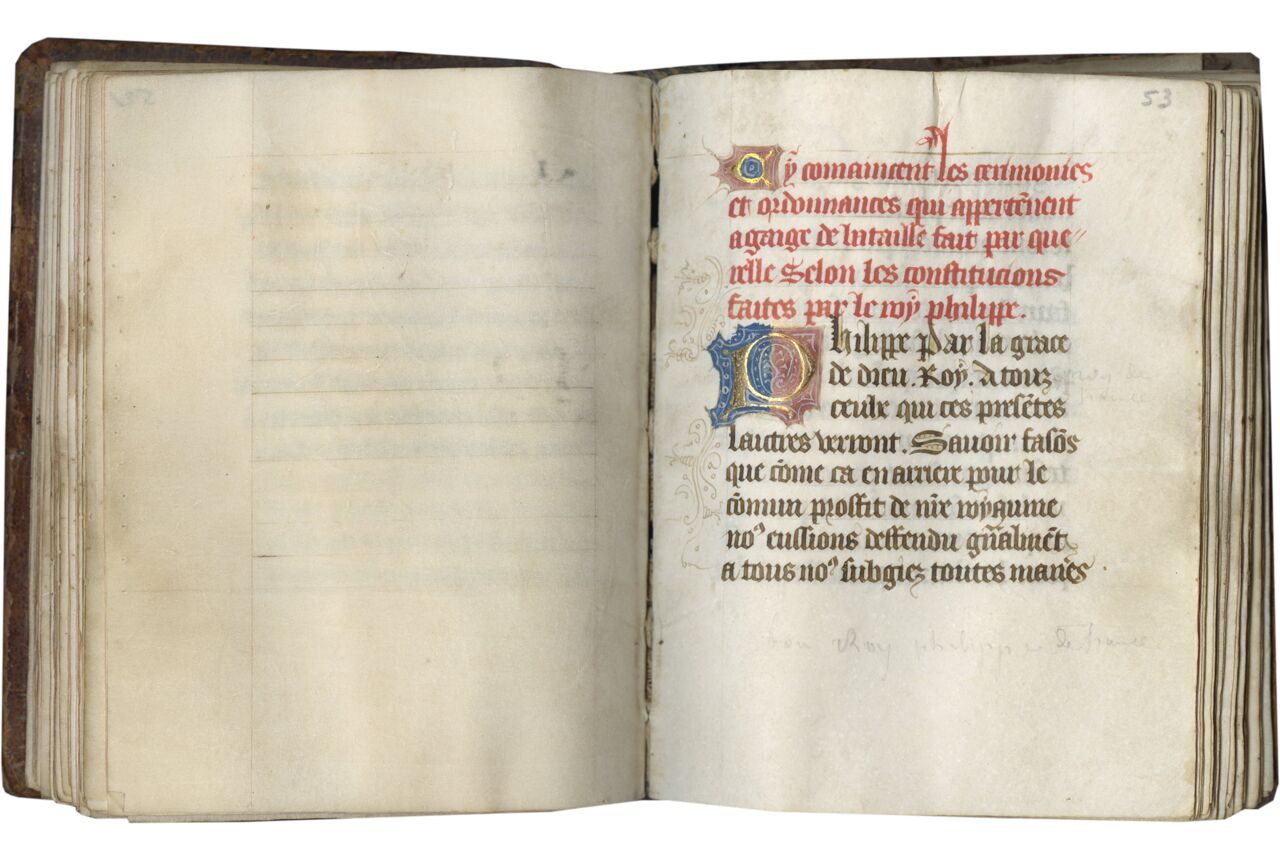 53
Cy comaincent les cerimonies
et ordonnances qui apperteñent
a gaige de bataille fait par que〃
relle Selon les constitucions
faites par le roy phelippe.
Philippe par la grace
de dieu. Roy. A touz
ceulx qui ces presẽtes
laictres verront. Sauoir fasõs
que cõme ca en arriere pour le
cõmun proffit de nr̃e royaume
noꝰ eussions deffendu gñalmẽt
a tous noꝰ subgiez toutes manẽs
roy philippe de france